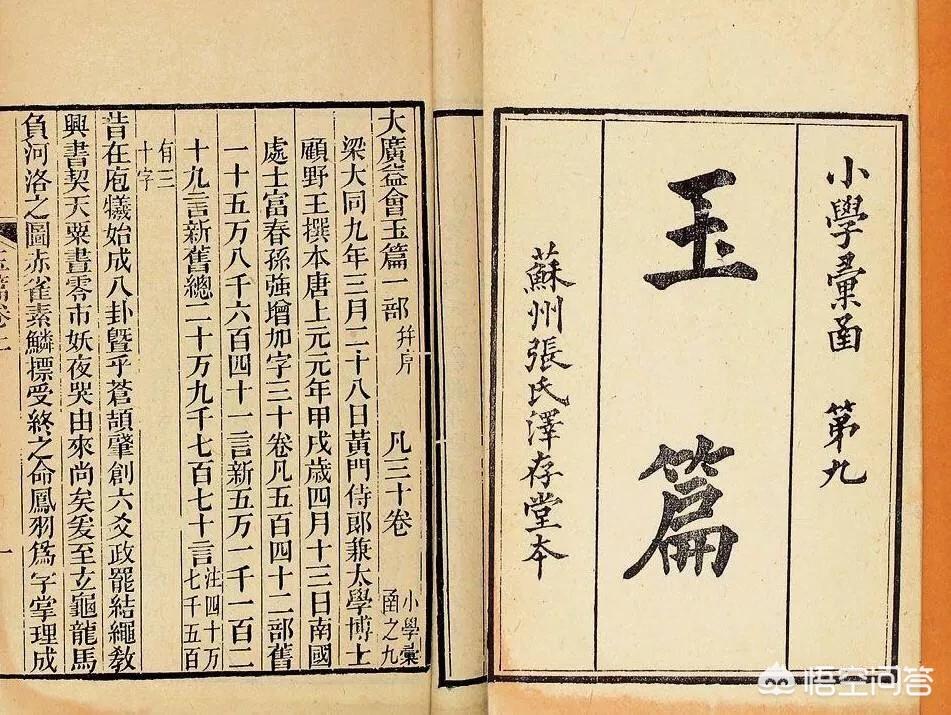 小學彙函 第九
玉篇
蘇州張氏澤存堂本
大廣益會玉篇一部 并序 凡三十卷 小學彙函之九
梁大同九年三月二十八日黃門侍郎兼太學博士
顧野王撰本唐上元元年甲戌歲四月十三日南國
處士富春孫強增加字三十卷凡五百四十二部舊
一十五万八千六百四十一言新五万一千一百二
十九言新舊總二十万九千七百七十言 注四十万七千五百
有三十字
昔在庖犧始成八卦暨乎蒼頡肇創六爻政罷結繩教
興書契天粟晝零市妖夜哭由來尚矣爰至玄龜龍馬
負河洛之圖赤雀素鱗標受終之命鳳羽爲字掌理成
一
悟空问答